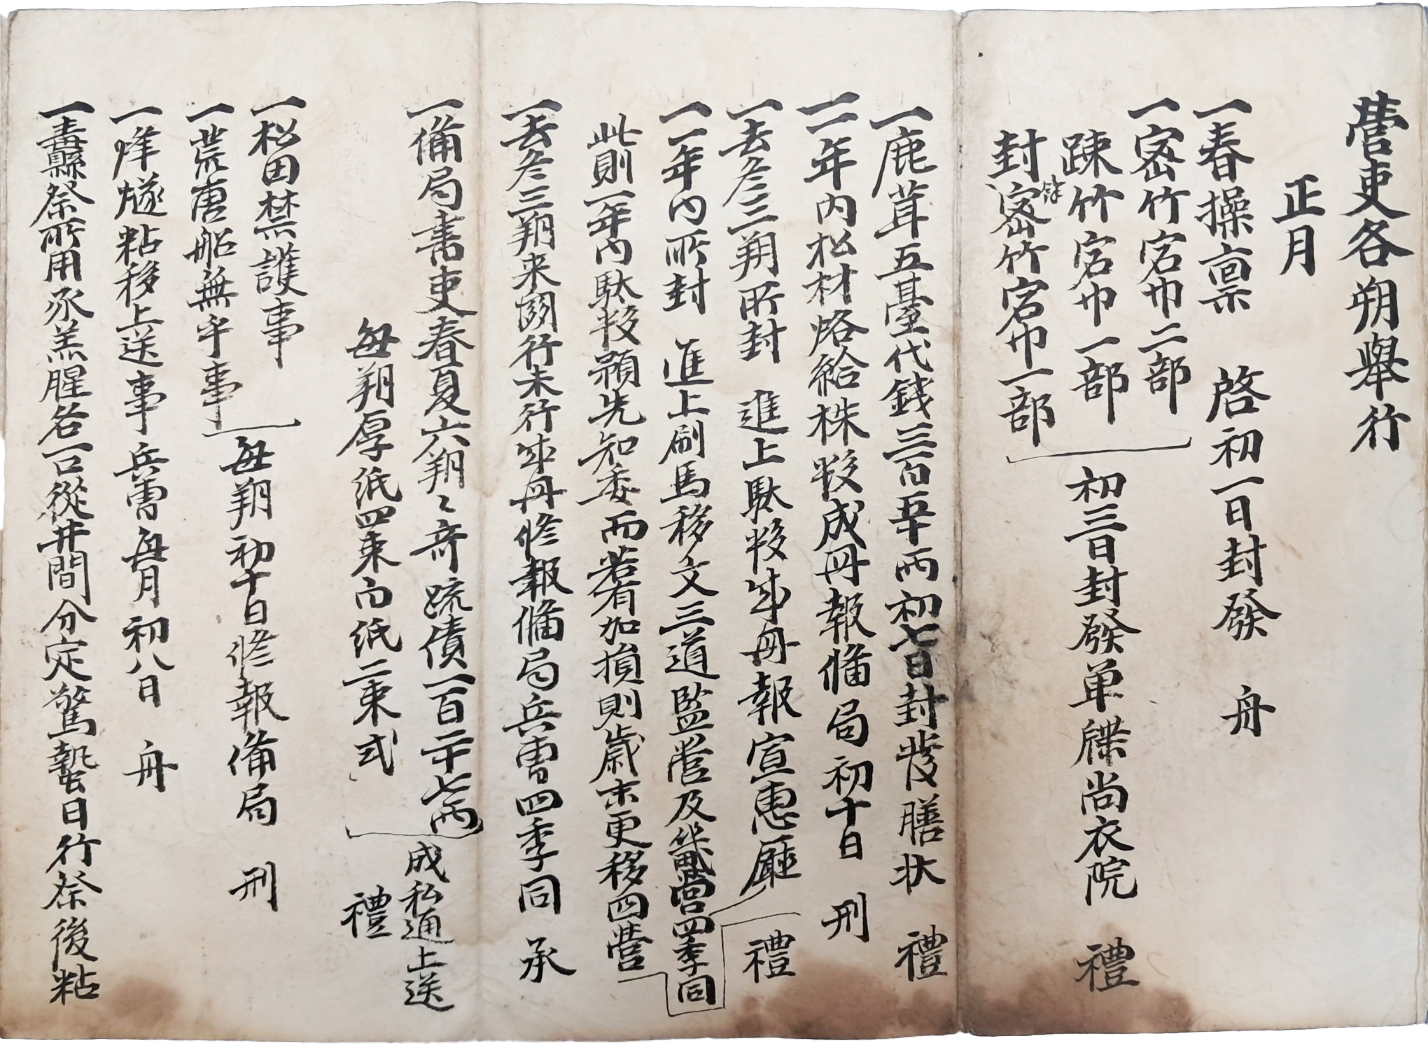 營吏各朔擧行
正月
一春操稟 啓初一日封發 舟
一密竹宕巾二部
踈竹宕巾一部
封密竹宕巾一部
初三日封發单牒尚衣院 禮
一鹿茸五臺代錢三百五十兩初七日封發膳狀 禮
一一年內松材烙給株數成冊報備局初十日 刑
一去冬三朔所封 進上駄數成冊報宣惠廳
一一年內所封 進上刷馬移文三道監營及統營四季同
此則一年內駄數顆先知委而若有加損則歲末更移四營
禮
一去冬三朔来鬪行未行成冊修報備局兵曹四季同 承
一備局書吏春夏六朔〻斎疏債一百二十七兩
每朔厚紙四束白紙二束式
成私通上送
禮
一松田禁護事
一荒唐船無乎事
每朔初十日修報備局 刑
一烽燧粘移上送事兵曹每月初八日 舟
一纛祭所用豕羔腥各一口從井間分定驚蟄日行祭後粘